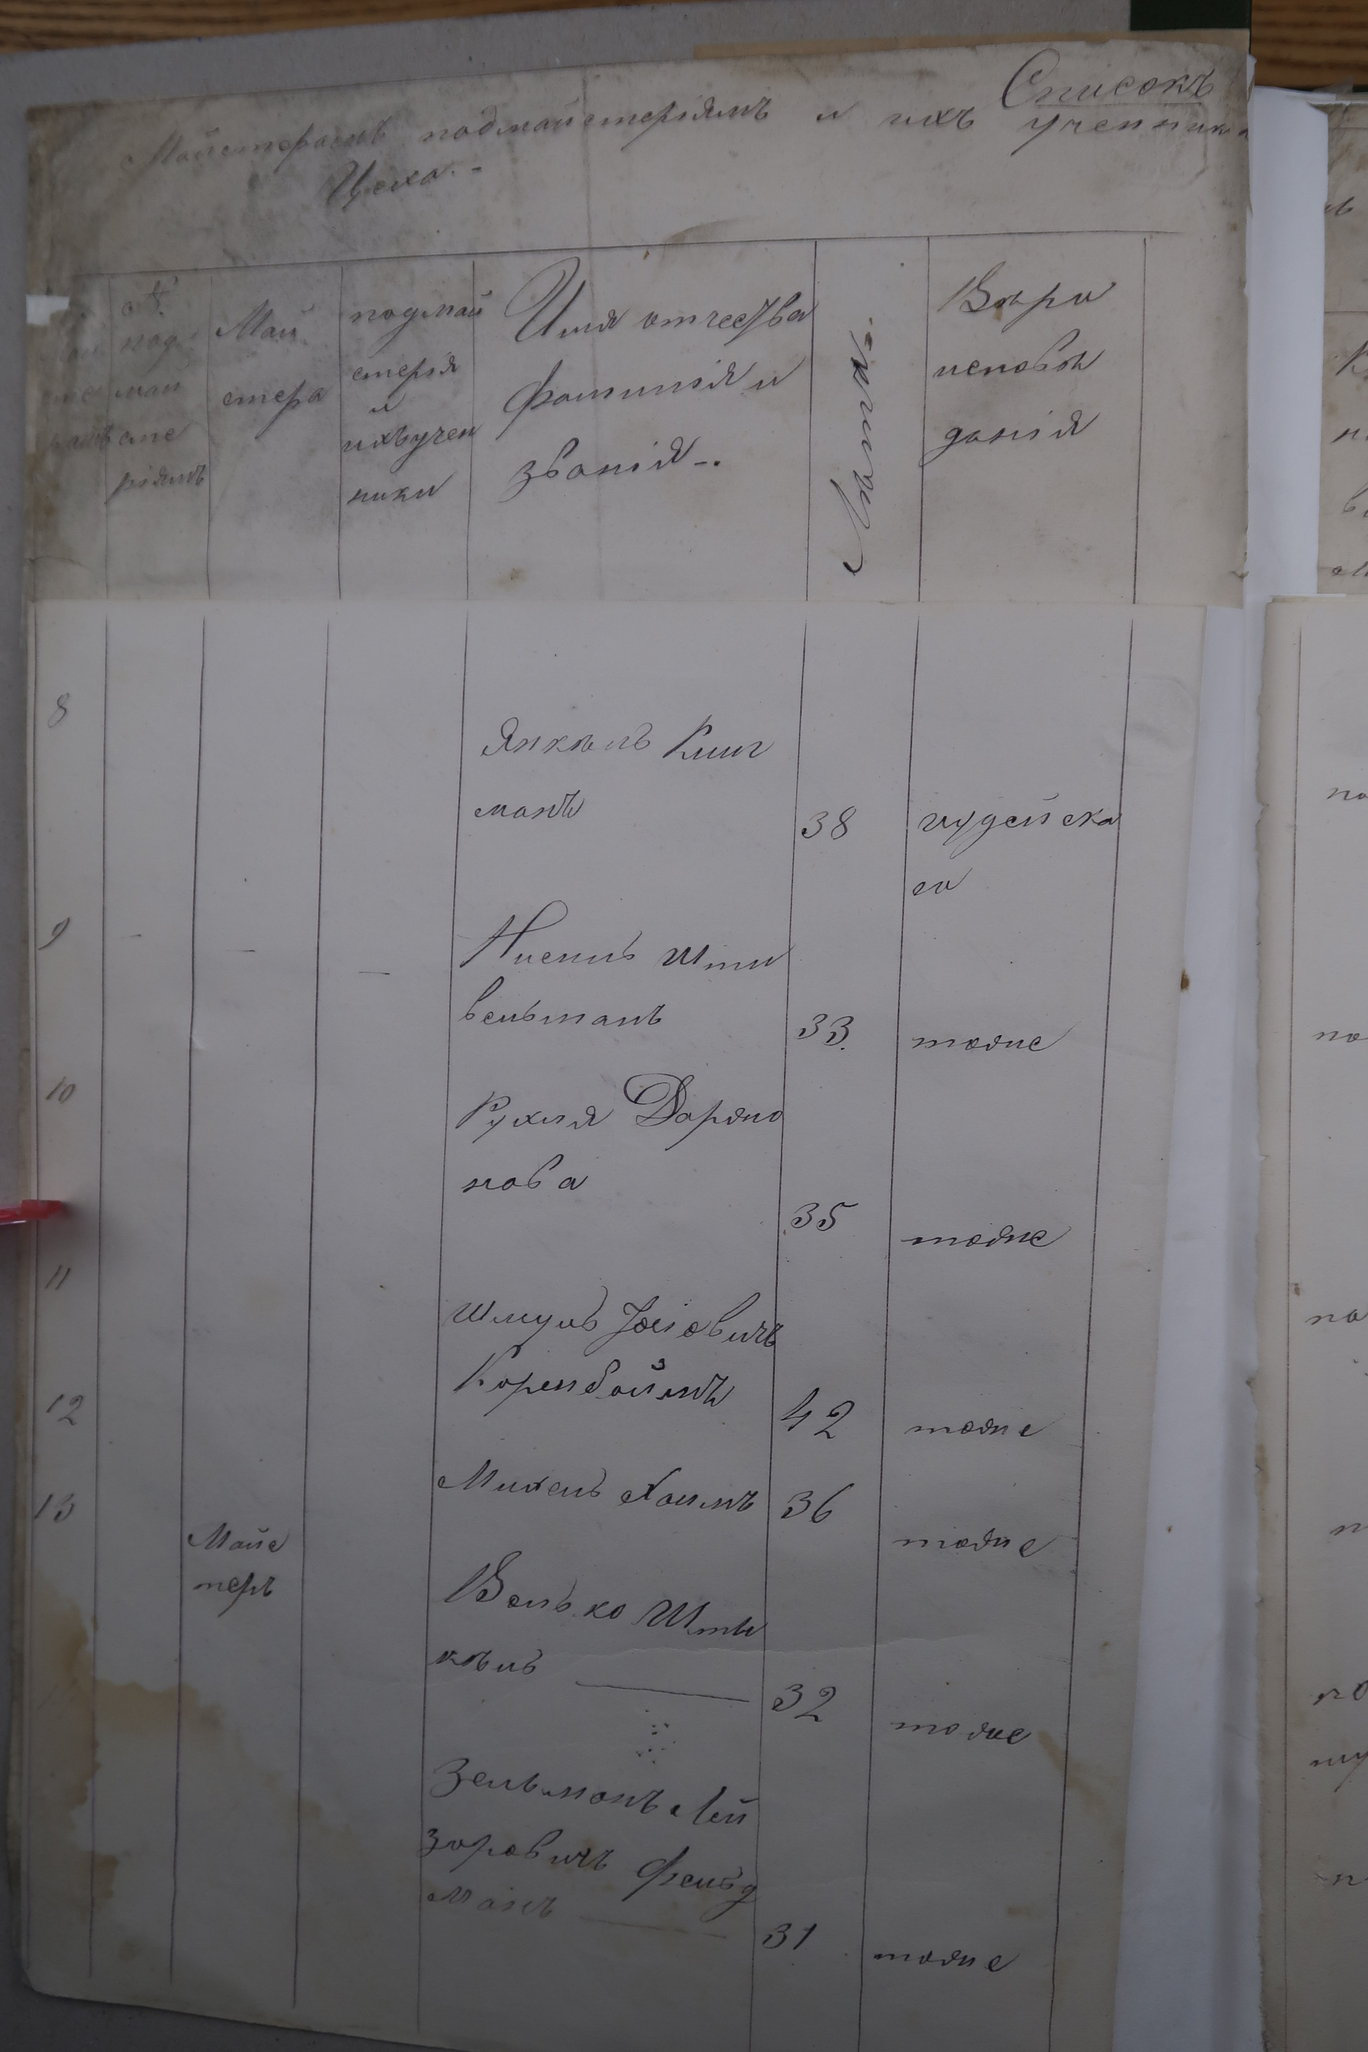 Списокъ
Майстерамъ подмайстеріямъ и ихъ ученика
Цеха.-
№
под
май
сте
ріямъ
Май
стера
подмай
стерія
и
ихъ учен
ники
Имя отчества
фамилія и
званія-.
Лѣта.
Вѣри
исповѣ
данія
8
Янкѣль Клиг
манъ
38
иудейска
го
9
Нисель Шти
вельманъ
33.
тоже
10
Рухля Даряно
нова
35
тоже
11
Шмуль Јосіовичъ
Коренбоймъ
42
тоже
12
Михель Хаимъ
36
тоже
13
Майс
теръ
Велько Шты
кѣль
32
тоже
Зельманъ Лей
зоровичъ Фельд
манъ
31
тоже